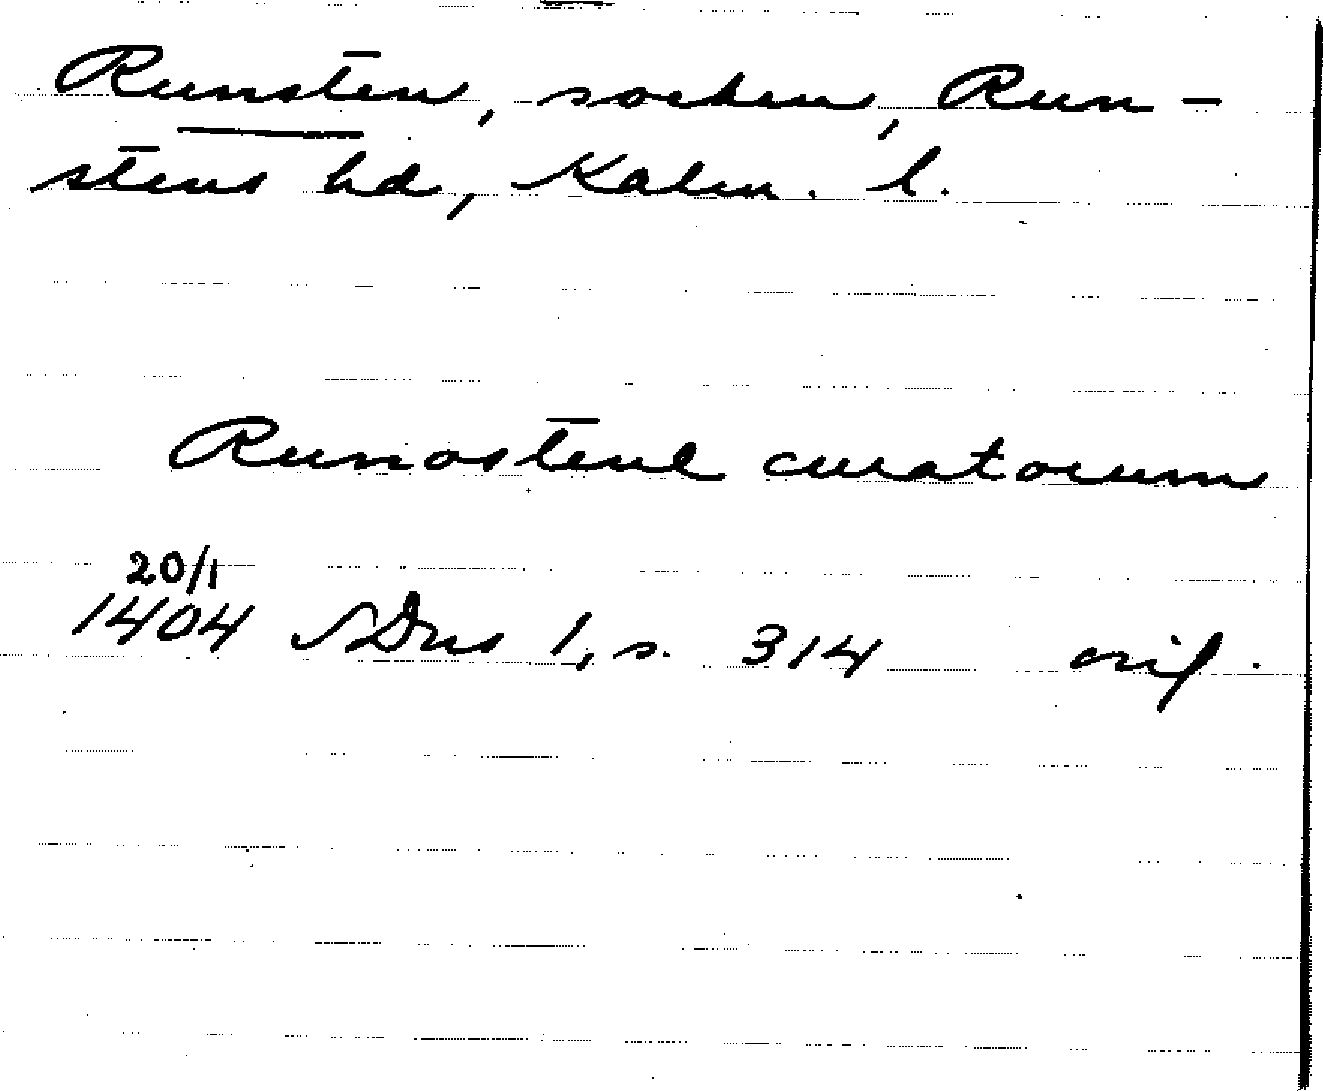 Runsten, socken, Run-
stens hd, Kalm. l.
Runostenl curatorum
20/1
1404 SDns 1, s. 314 orig.